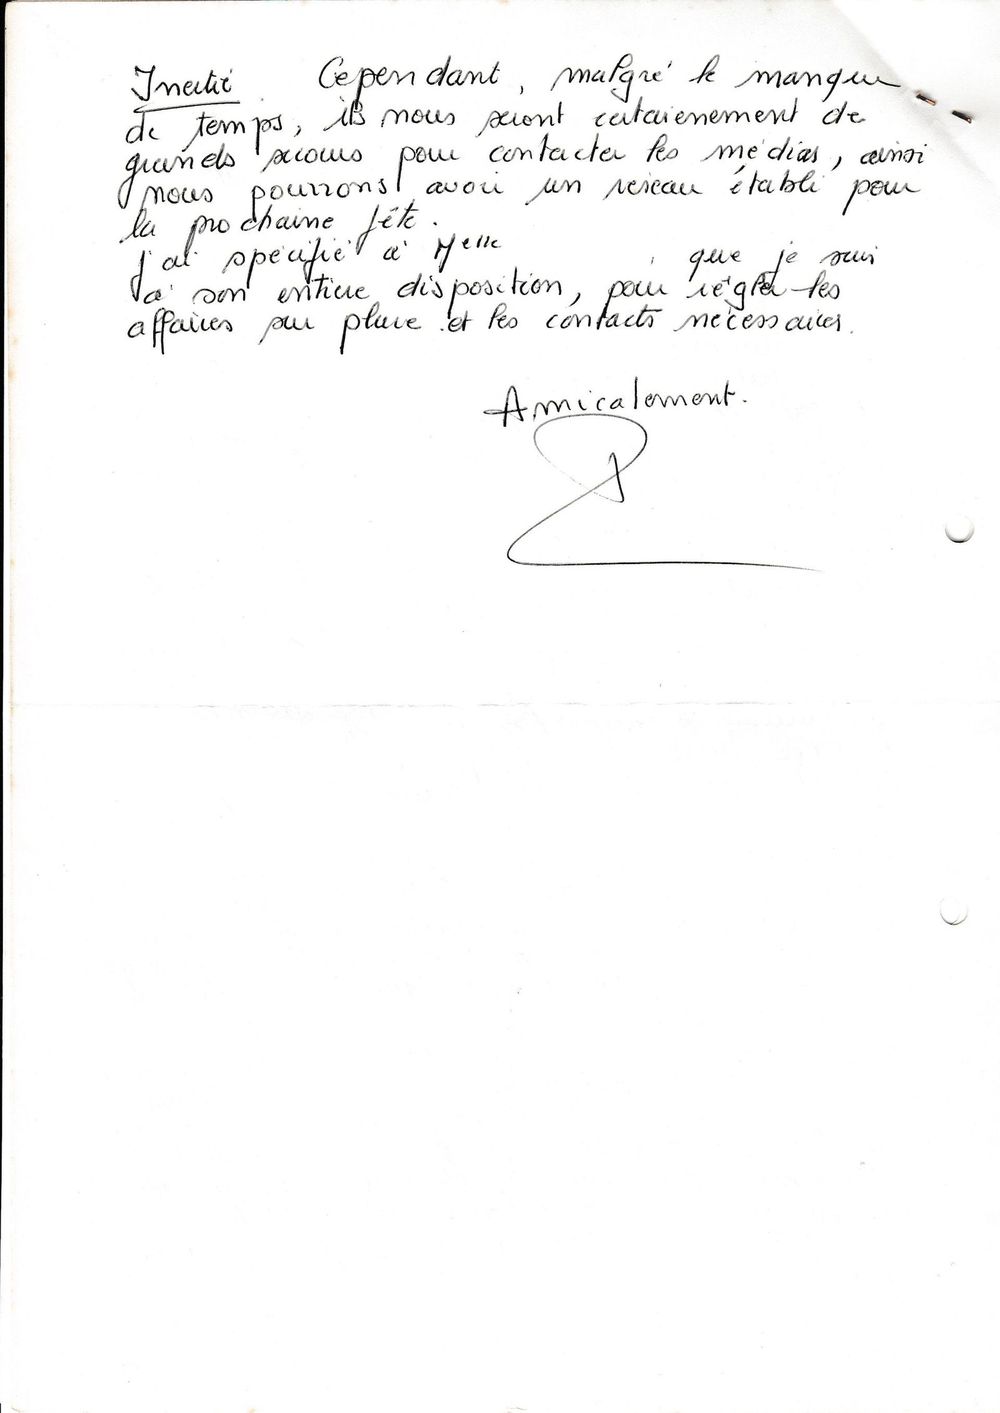 Cependant, malgré le manque
de temps, ils nous seront certainement de
grands secours pour contacter les médias, ainsi
nous pourrons avoir un réseau établi pour
la prochaine fête.
j'ai spécifié à Melle que je suis
à son entière disposition, pour régler les
affaires sur place et les contacts nécessaires.
Amicalement.